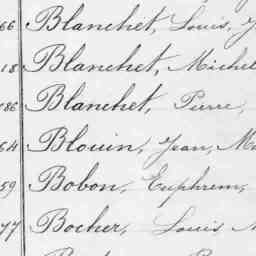 66 Blanchet, Louis, J
18 Blanchet, Michel
86 Blanchet, Pierre,
64 Blouin, Jean, M
59 Bobon, Euphrem,
77 Bocher, Louis M